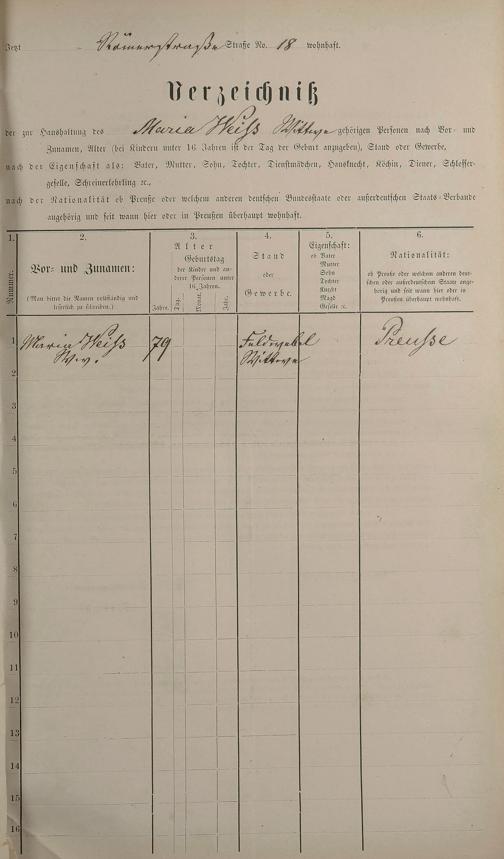 Jetzt Römerstraße Straße No. 18 wohnhaft.
Verzeichniß
der zur Haushaltung des Maria Weiss Wittwe gehörigen Personen nach Vor- und
Zunamen, Alter (bei Kindern unter 16 Jahren ist der Tag der Geburt anzugeben), Stand oder Gewerbe,
nach der Eigenschaft als: Vater, Mutter, Sohn, Tochter, Dienstmädchen, Hausknecht, Köchin, Diener, Schlosser-
geselle, Schreinerlehrling ꝛc.,
nach der Nationalität ob Preuße oder welchem anderen deutschen Bundesstaate oder außerdeutschen Staats-Verbande
angehörig und seit wann hier oder in Preußen überhaupt wohnhaft.
1.
Nummer.
2.
Vor- und Zunamen:
(Man bittet die Namen vollständig und
leserlich zu schreiben.)
3.
Alter
Geburtstag
der Kinder und an-
derer Personen unter
16 Jahren.
Jahre.
Tag.
Monat.
Jahr.
4.
Stand
oder
Gewerbe.
5.
Eigenschaft:
ob Vater
Mutter
Sohn
Tochter
Knecht
Magd
Geselle ꝛc.
6.
Nationalität:
ob Preuße oder welchem anderen deut-
schen oder außerdeutschen Staate ange-
hörig und seit wann hier oder in
Preußen überhaupt wohnhaft.
1 Maria Weiss 79 Feldwebel Preusse
Ww. Wittwe
2
3
4
5
6
7
8
9
10
11
12
13
14
15
16